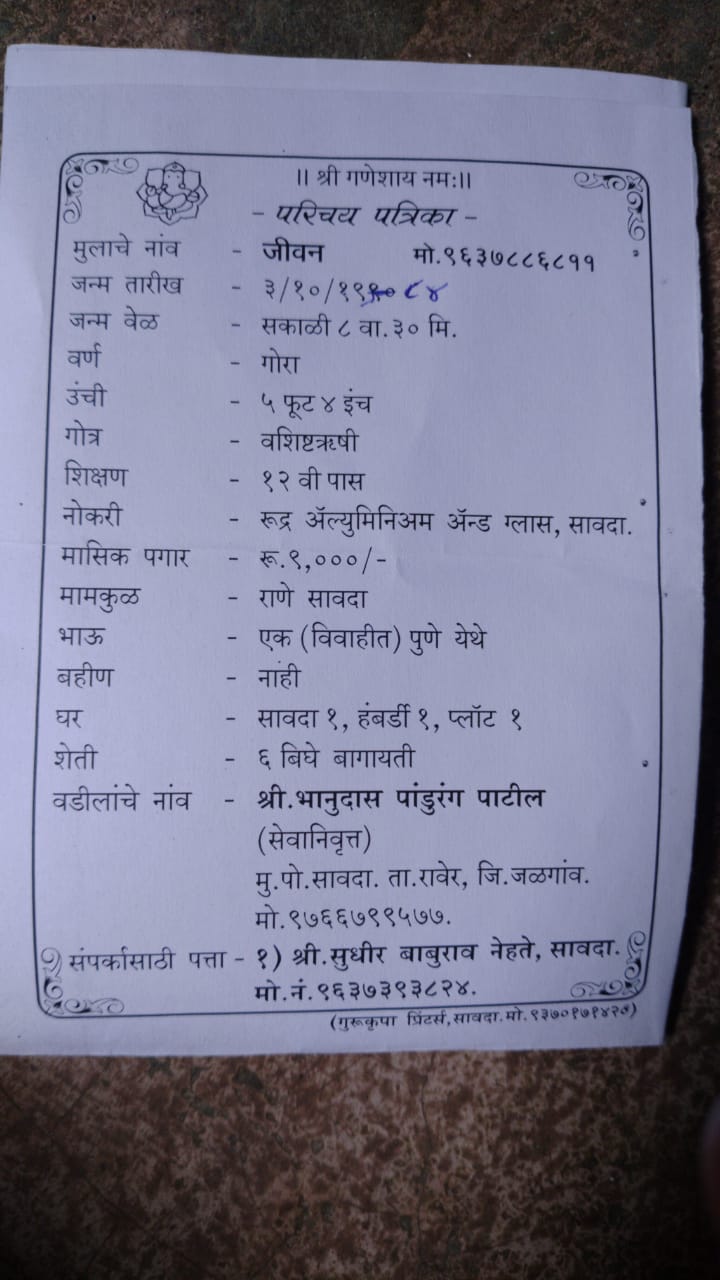 ।। श्री गणेशाय नमः।।
- परिचय पत्रिका -
मुलाचे नांव - जीवन मो.९६३७८८६८११
जन्म तारीख - ३/१०/१९ ८४
जन्म वेळ - सकाळी ८ वा.३० मि.
वर्ण - गोरा
उंची - ५ फूट ४ इंच
गोत्र - वशिष्टऋषी
शिक्षण - १२ वी पास
नोकरी - रूद्र ॲल्युमिनिअम ॲन्ड ग्लास, सावदा.
मासिक पगार - रू.९,०००/-
मामकुळ - राणे सावदा
भाऊ - एक (विवाहीत) पुणे येथे
बहीण - नाही
घर - सावदा १, हंबर्डी १, प्लॉट १
शेती - ६ बिघे बागायती
वडीलांचे नांव - श्री.भानुदास पांडुरंग पाटील
(सेवानिवृत्त)
मु.पो.सावदा. ता.रावेर, जि.जळगांव.
मो.९७६६७९९५७७.
संपर्कासाठी पत्ता - १) श्री.सुधीर बाबुराव नेहते, सावदा.
मो.नं.९६३७३९३८२४.
(गुरूकृपा प्रिंटर्स,सावदा.मो.